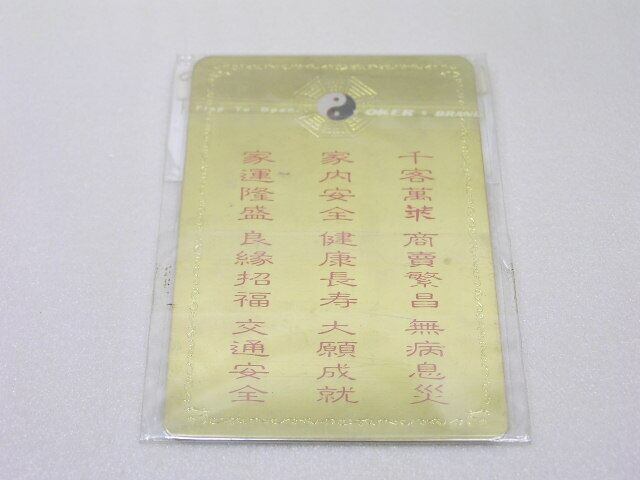 Flap To Open
OKER
BRAND
千客萬来 商賣繁昌 無病息災
家内安全 健康長寿 大願成就
家運隆盛 良緣招福 交通安全